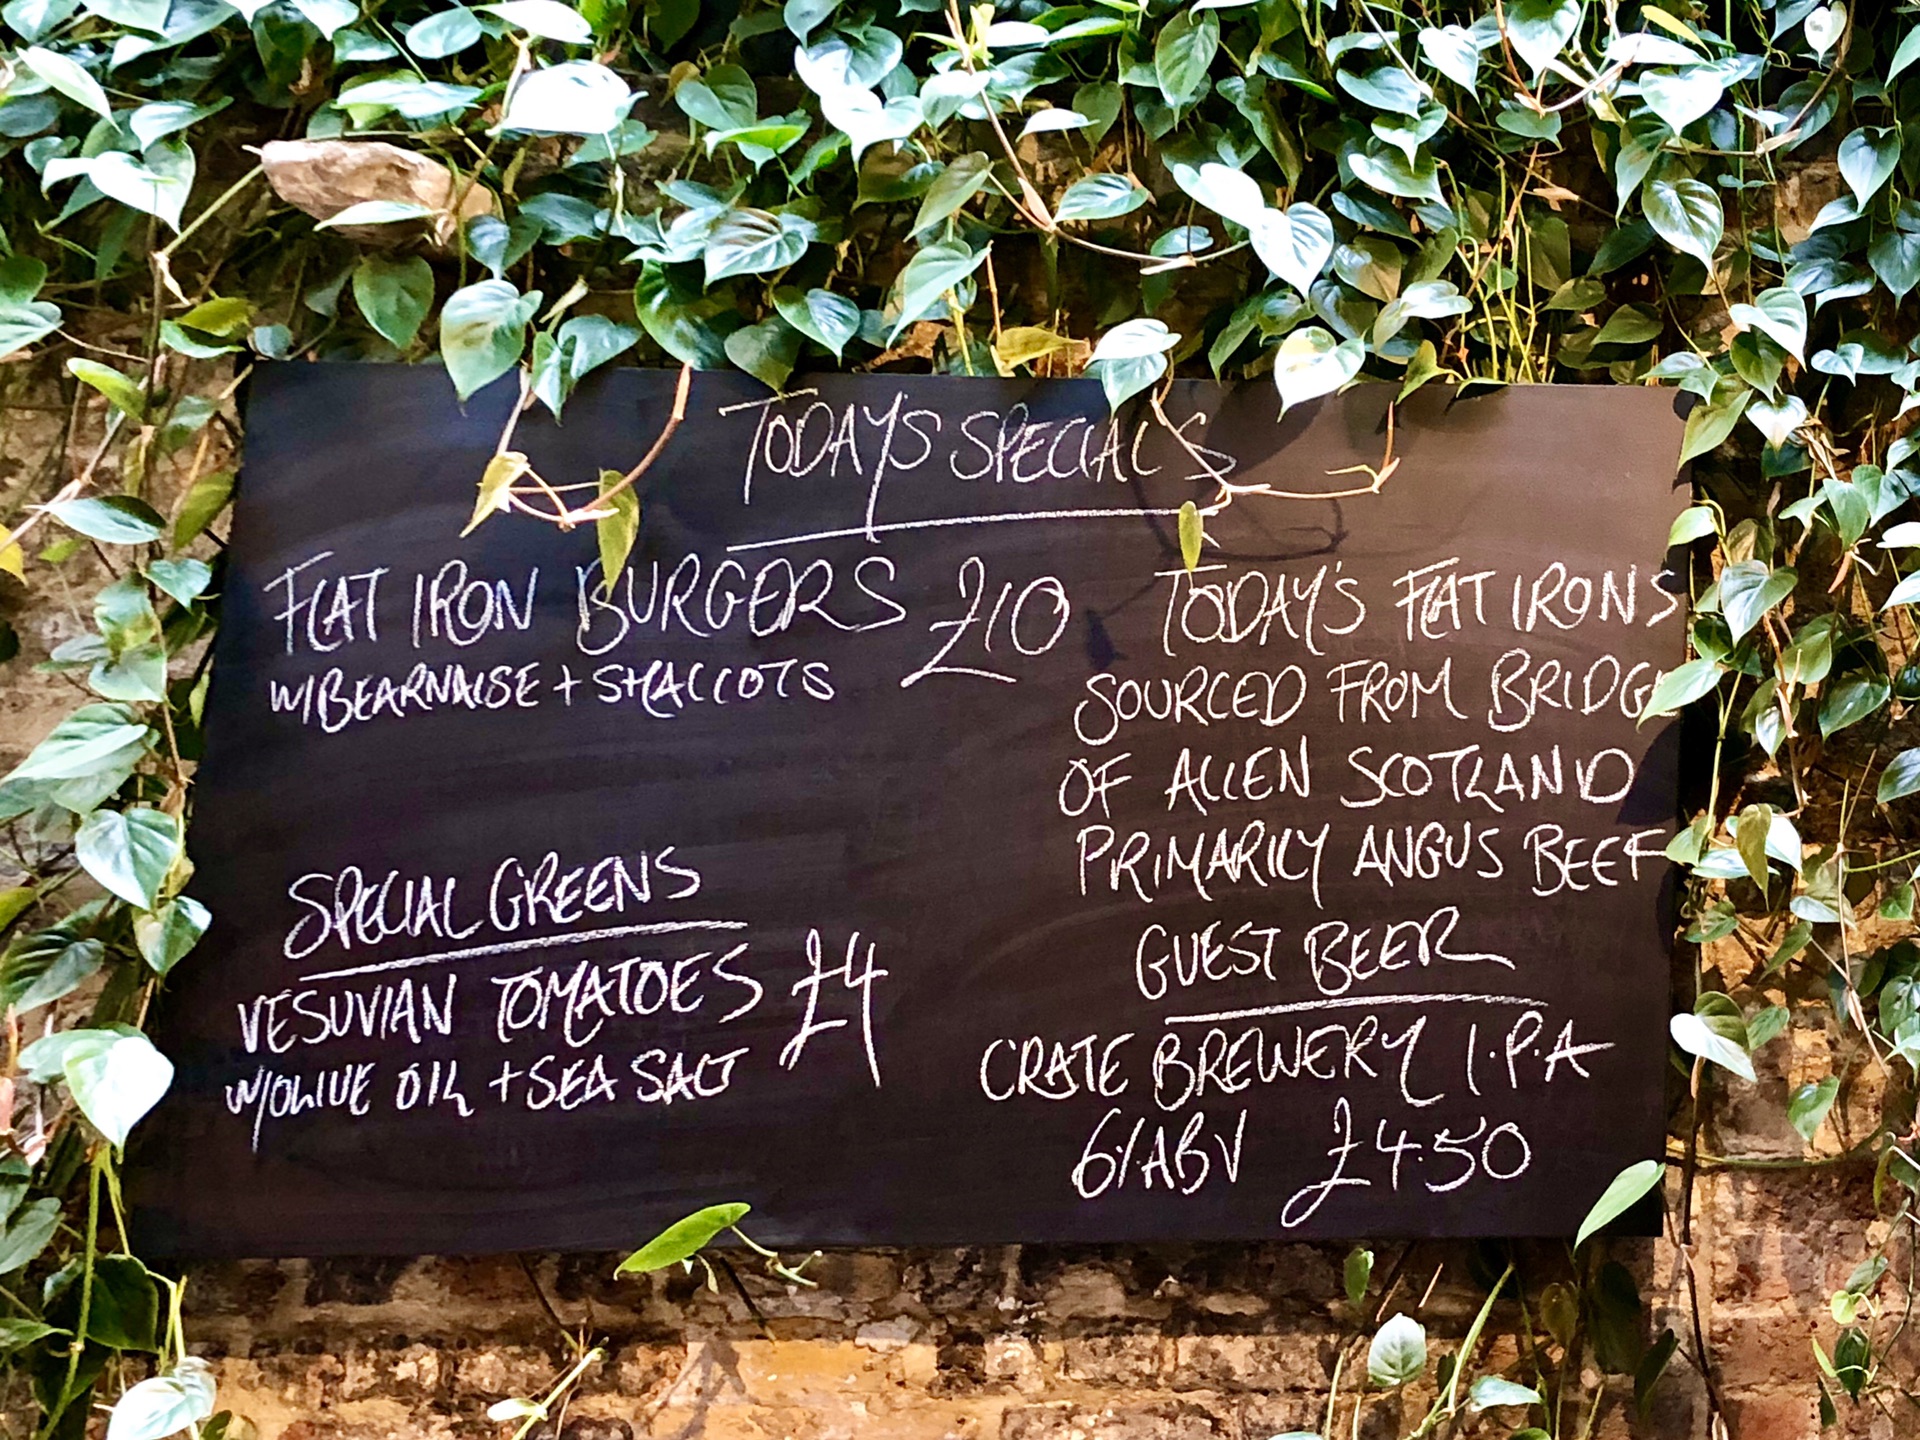 TODAY'S SPECIALS
FLAT IRON BURGERS £10
W/BEARNAISE + SHALLOTS
SPECIAL GREENS
VESUVIAN TOMATOES £4
W/OLIVE OIL + SEA SALT
TODAY'S FLAT IRONS
SOURCED FROM BRIDGE
OF ALLEN SCOTLAND
PRIMARILY ANGUS BEEF
GUEST BEER
CRATE BREWERY I.P.A
6% ABV £4.50